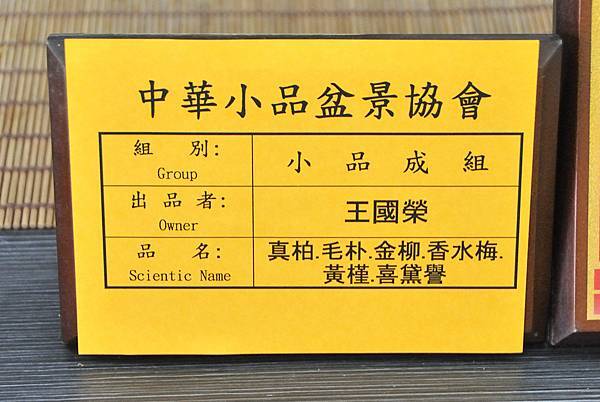 中華小品盆景協會
組 別: 小 品 成 組
Group
出 品 者: 王國榮
Owner
品 名: 真柏.毛朴.金柳.香水梅.
Scientic Name 黃槿.喜黛譽